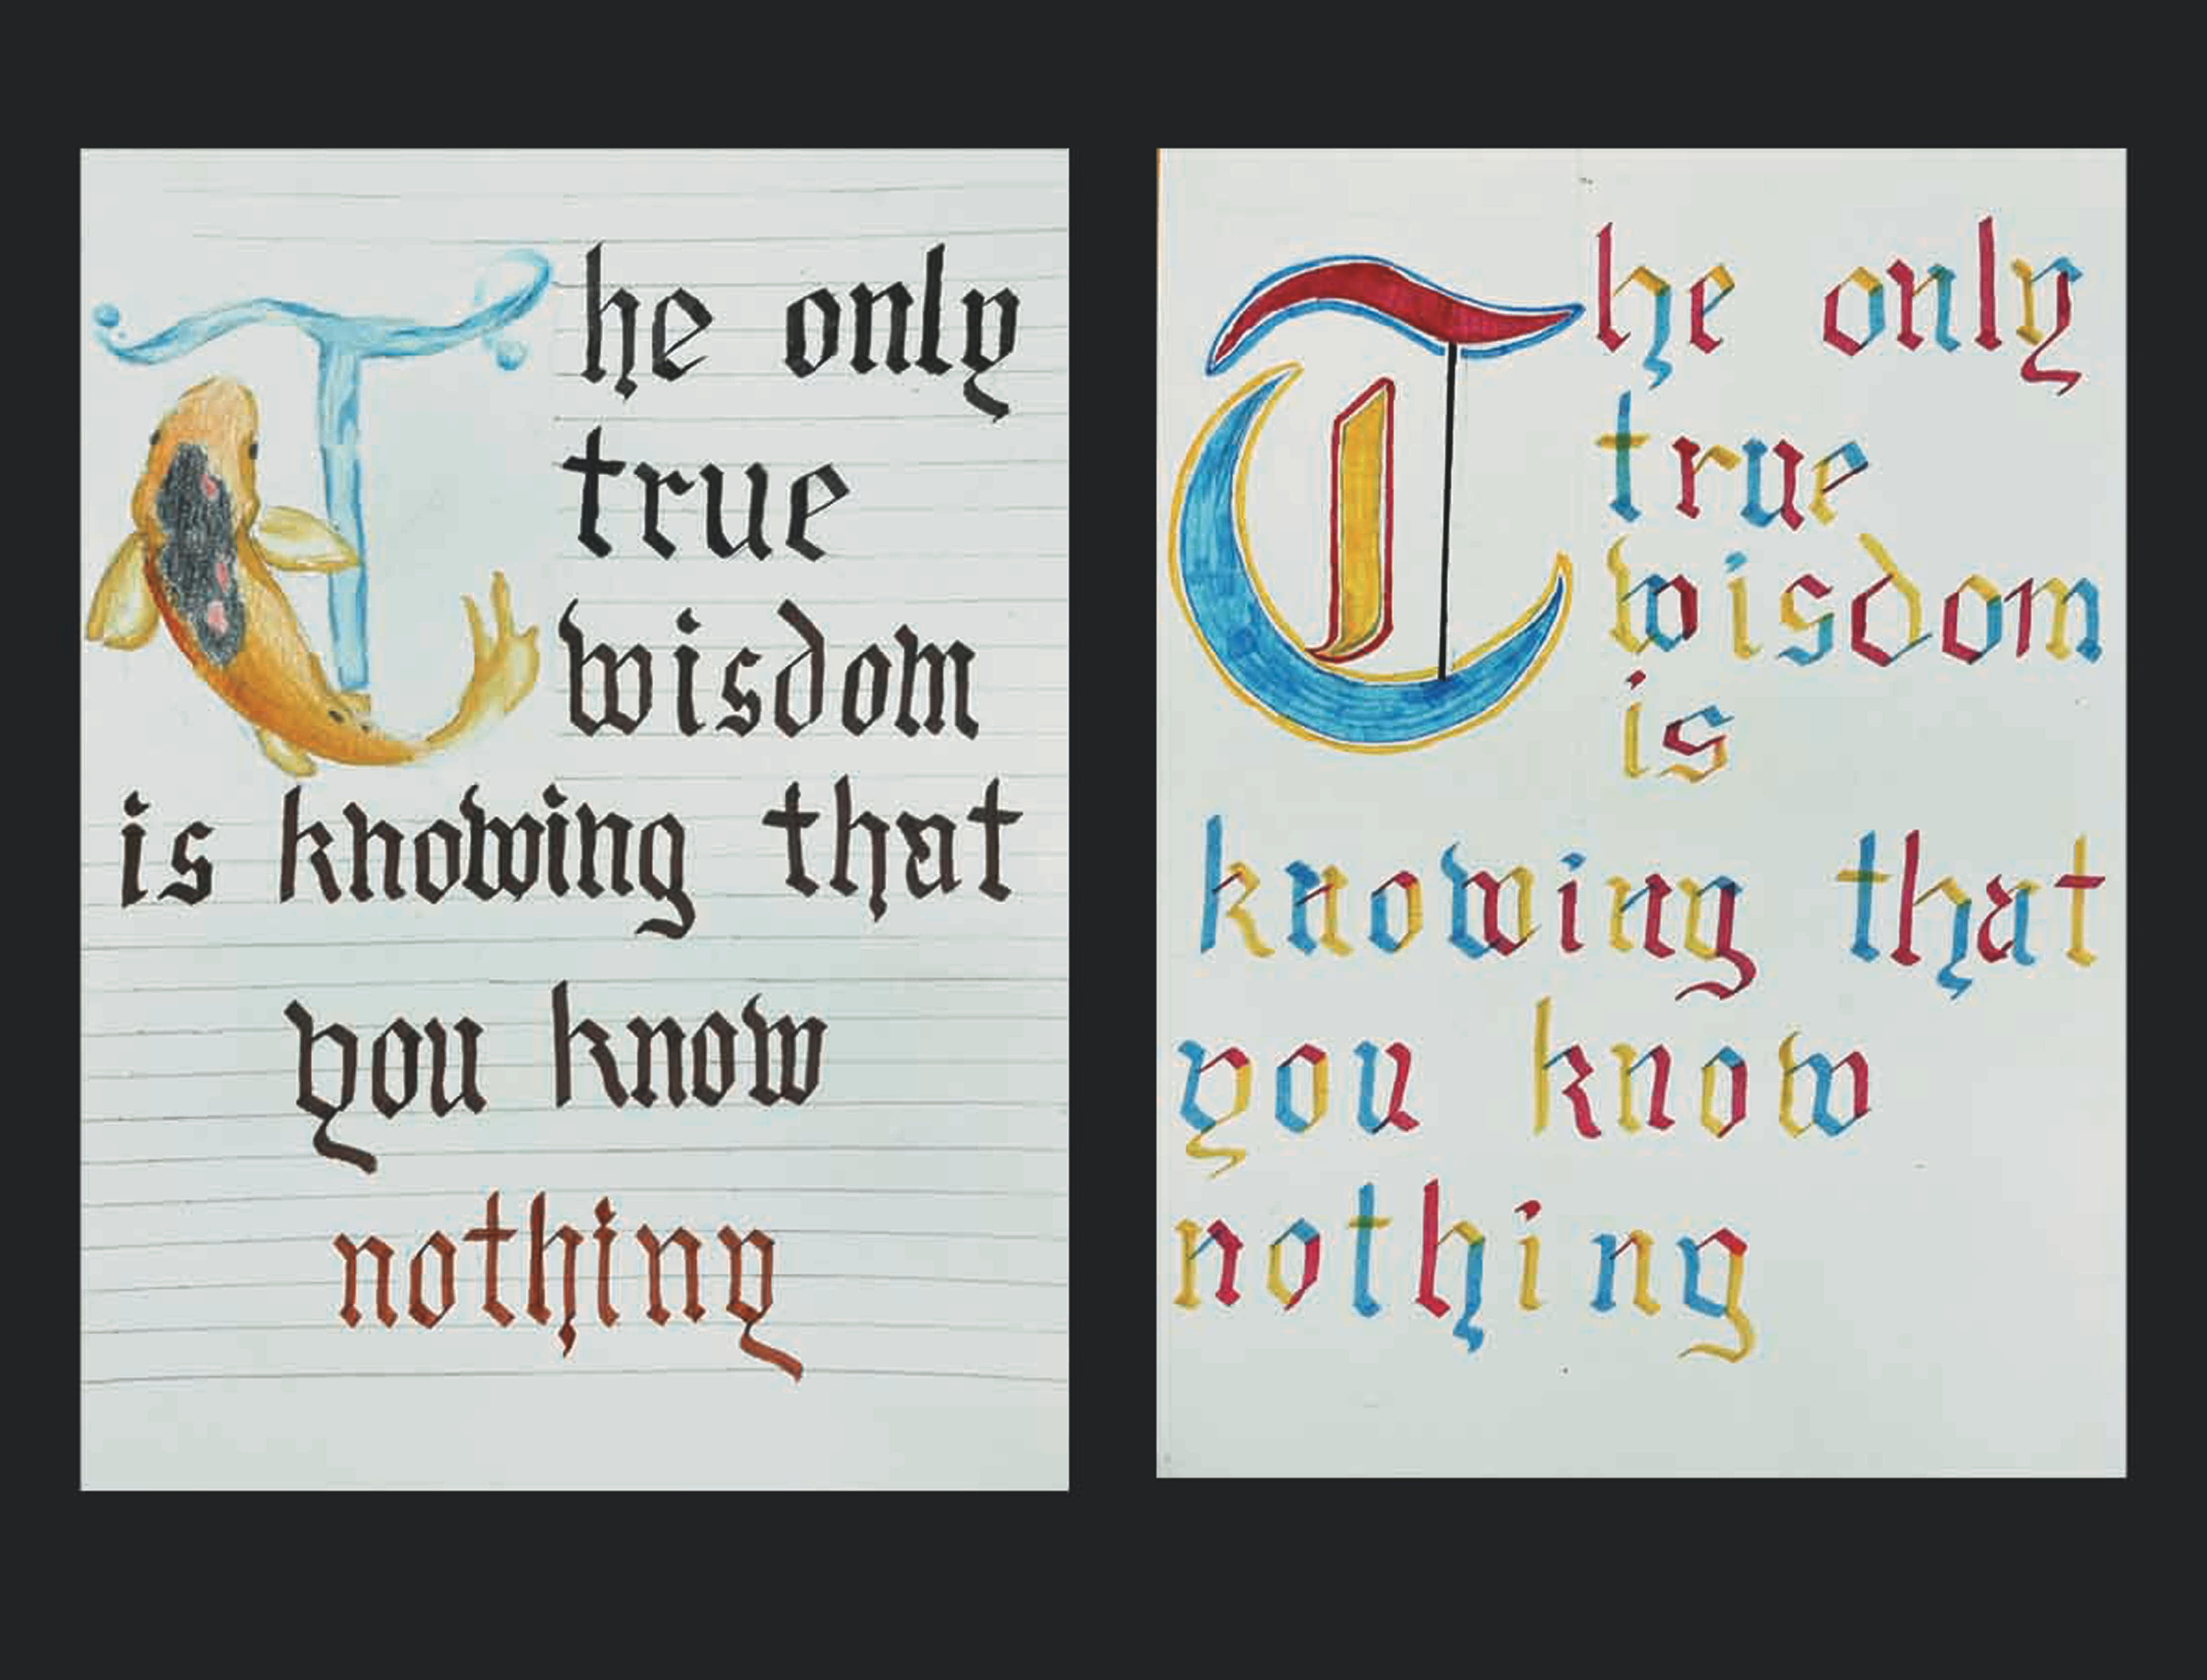 The only
true
wisdom
is knowing that
you know
nothing
The only
true
wisdom
is
knowing that
you know
nothing